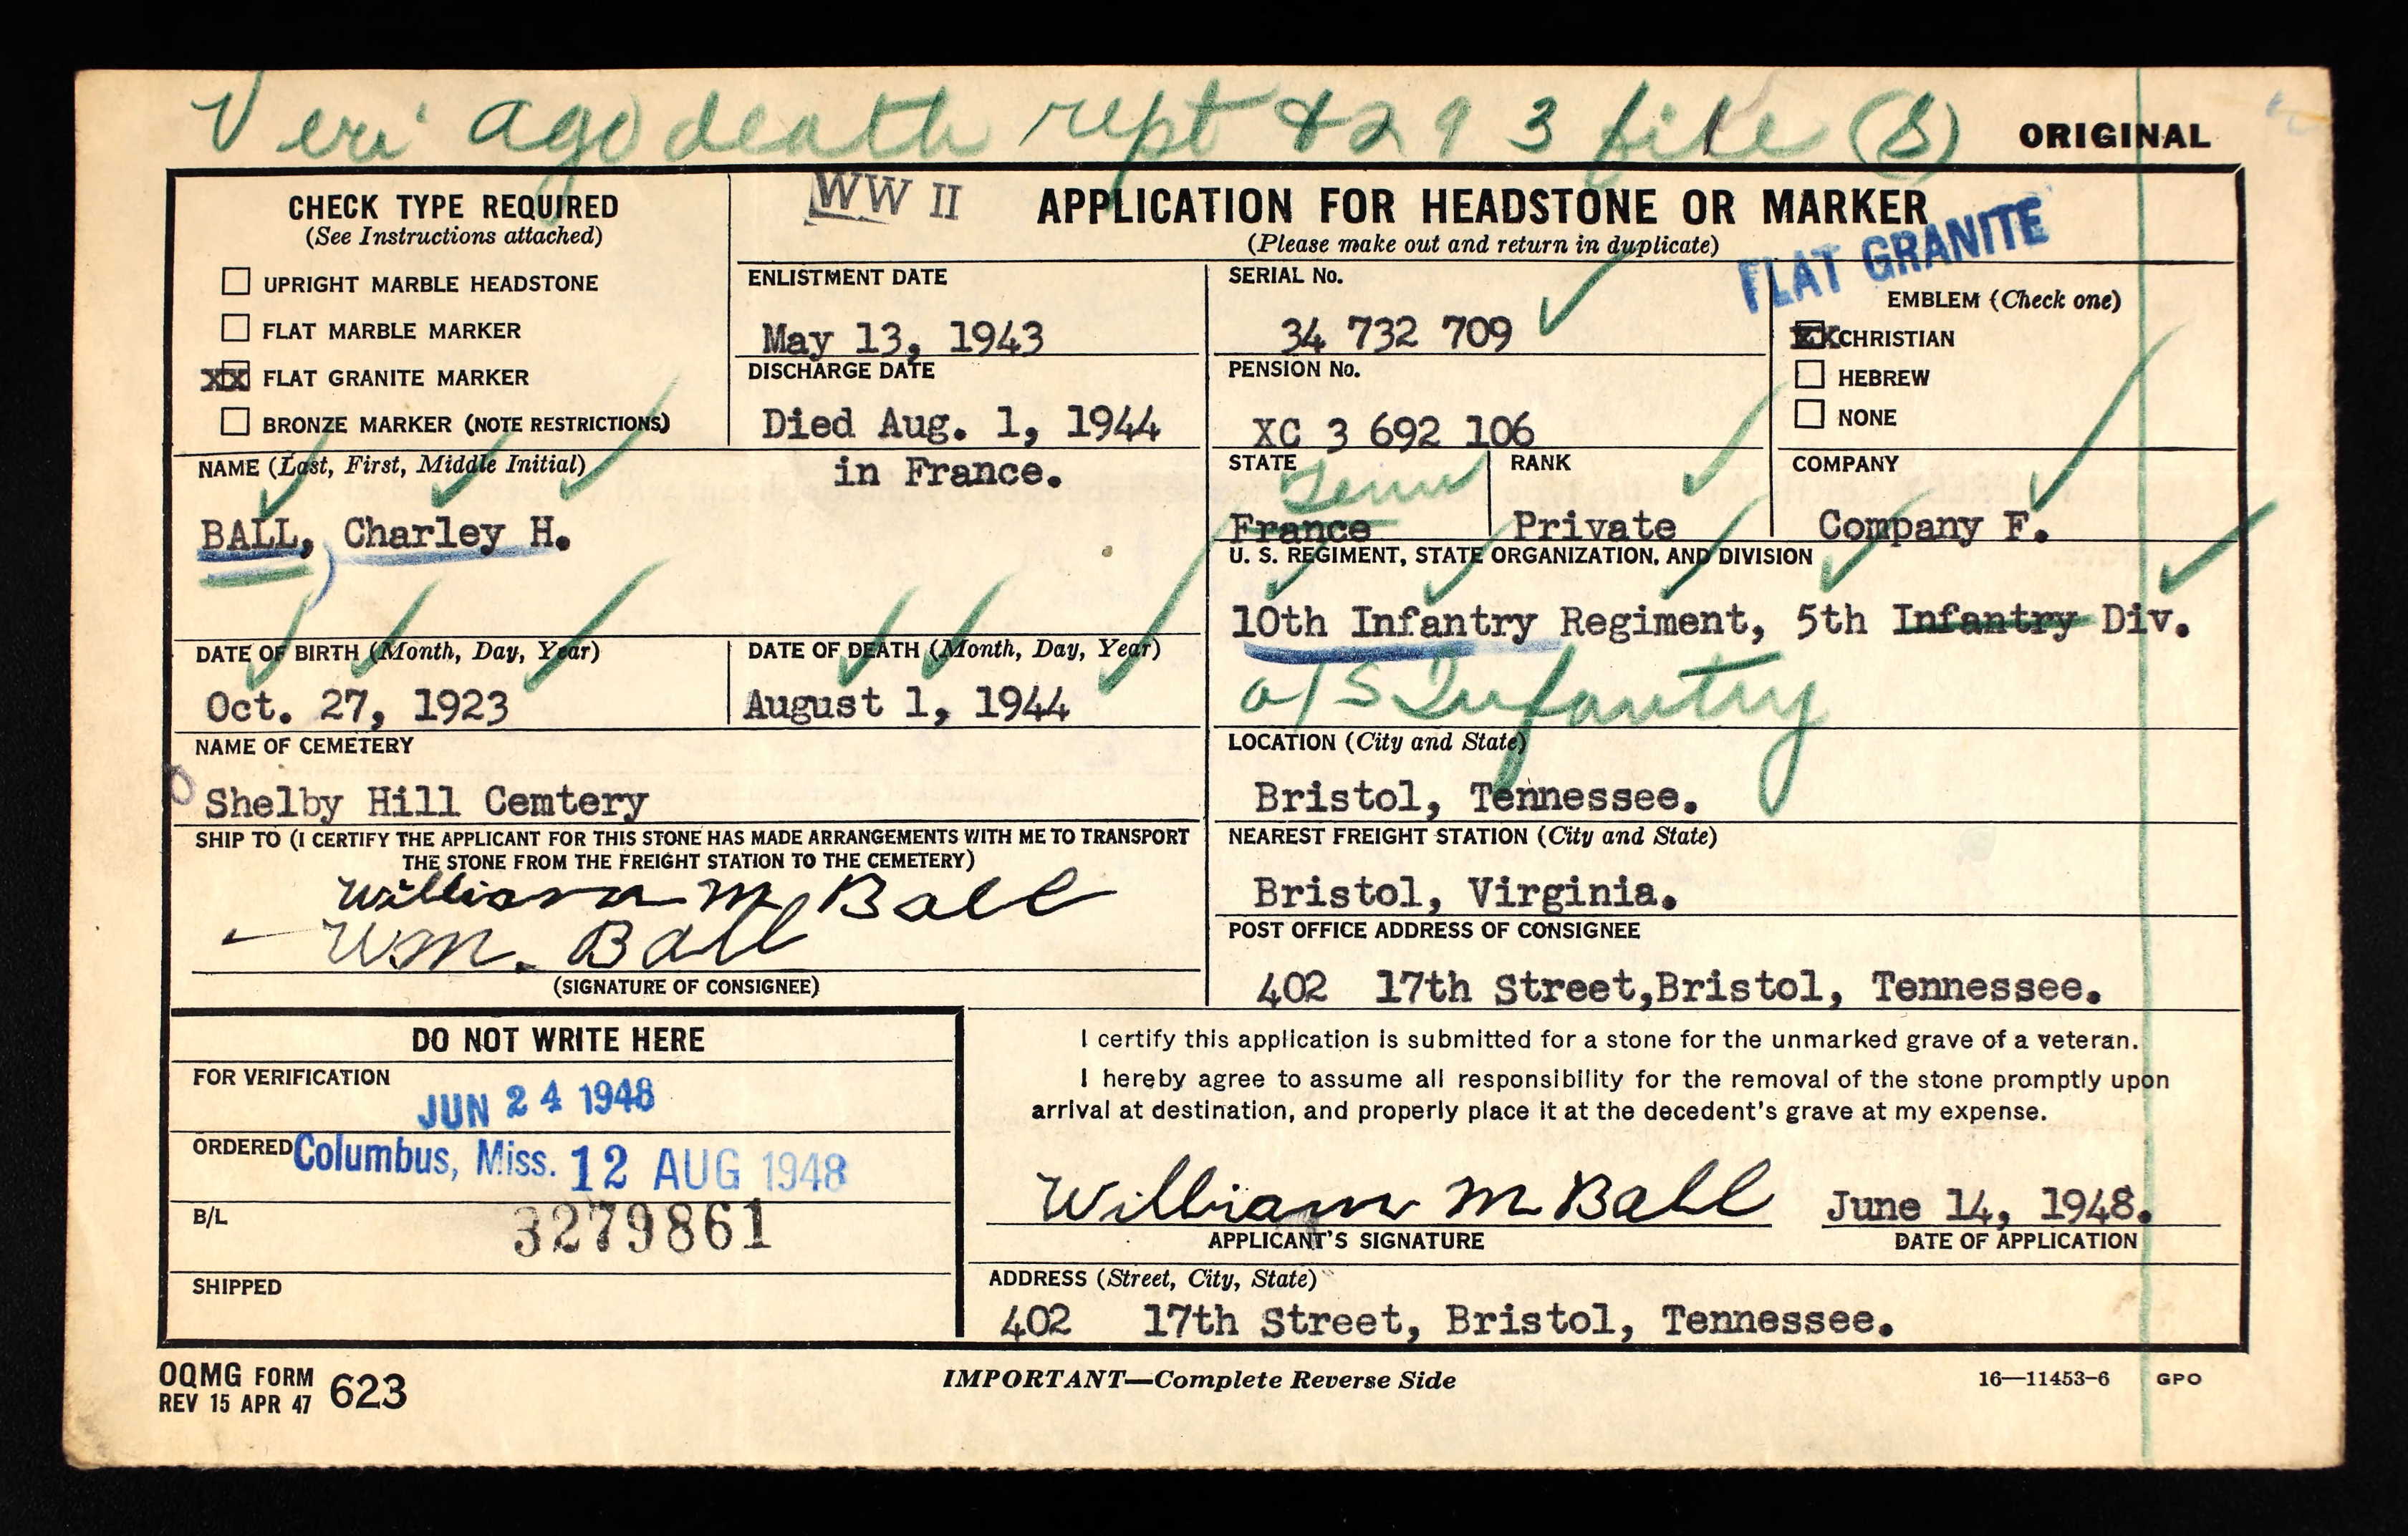 Veri ago death rept & 293 file (S)
ORIGINAL
CHECK TYPE REQUIRED
(See Instructions attached)
UPRIGHT MARBLE HEADSTONE
FLAT MARBLE MARKER
XX FLAT GRANITE MARKER
BRONZE MARKER (NOTE RESTRICTIONS)
WW II
APPLICATION FOR HEADSTONE OR MARKER
(Please make out and return in duplicate)
FLAT GRANITE
ENLISTMENT DATE
May 13, 1943
DISCHARGE DATE
Died Aug. 1, 1944
in France.
SERIAL No.
34 732 709
PENSION No.
XC 3 692 106
EMBLEM (Check one)
XX CHRISTIAN
HEBREW
NONE
NAME (Last, First, Middle Initial)
BALL, Charley H.
STATE
Tenn
France
RANK
Private
COMPANY
Company F.
U. S. REGIMENT, STATE ORGANIZATION, AND DIVISION
10th Infantry Regiment, 5th Infantry Div.
a/s Infantry
DATE OF BIRTH (Month, Day, Year)
Oct. 27, 1923
DATE OF DEATH (Month, Day, Year)
August 1, 1944
NAME OF CEMETERY
Shelby Hill Cemtery
LOCATION (City and State)
Bristol, Tennessee.
SHIP TO (I CERTIFY THE APPLICANT FOR THIS STONE HAS MADE ARRANGEMENTS WITH ME TO TRANSPORT
THE STONE FROM THE FREIGHT STATION TO THE CEMETERY)
William M Ball
Wm. Ball
(SIGNATURE OF CONSIGNEE)
NEAREST FREIGHT STATION (City and State)
Bristol, Virginia.
POST OFFICE ADDRESS OF CONSIGNEE
402 17th Street,Bristol, Tennessee.
DO NOT WRITE HERE
FOR VERIFICATION
JUN 24 1948
ORDERED Columbus, Miss. 12 AUG 1948
B/L
3279861
SHIPPED
I certify this application is submitted for a stone for the unmarked grave of a veteran.
I hereby agree to assume all responsibility for the removal of the stone promptly upon
arrival at destination, and properly place it at the decedent's grave at my expense.
William M Ball
June 14, 1948.
APPLICANT'S SIGNATURE
DATE OF APPLICATION
ADDRESS (Street, City, State)
402 17th Street, Bristol, Tennessee.
OQMG FORM 623
REV 15 APR 47
IMPORTANT—Complete Reverse Side
16—11453-6 GPO